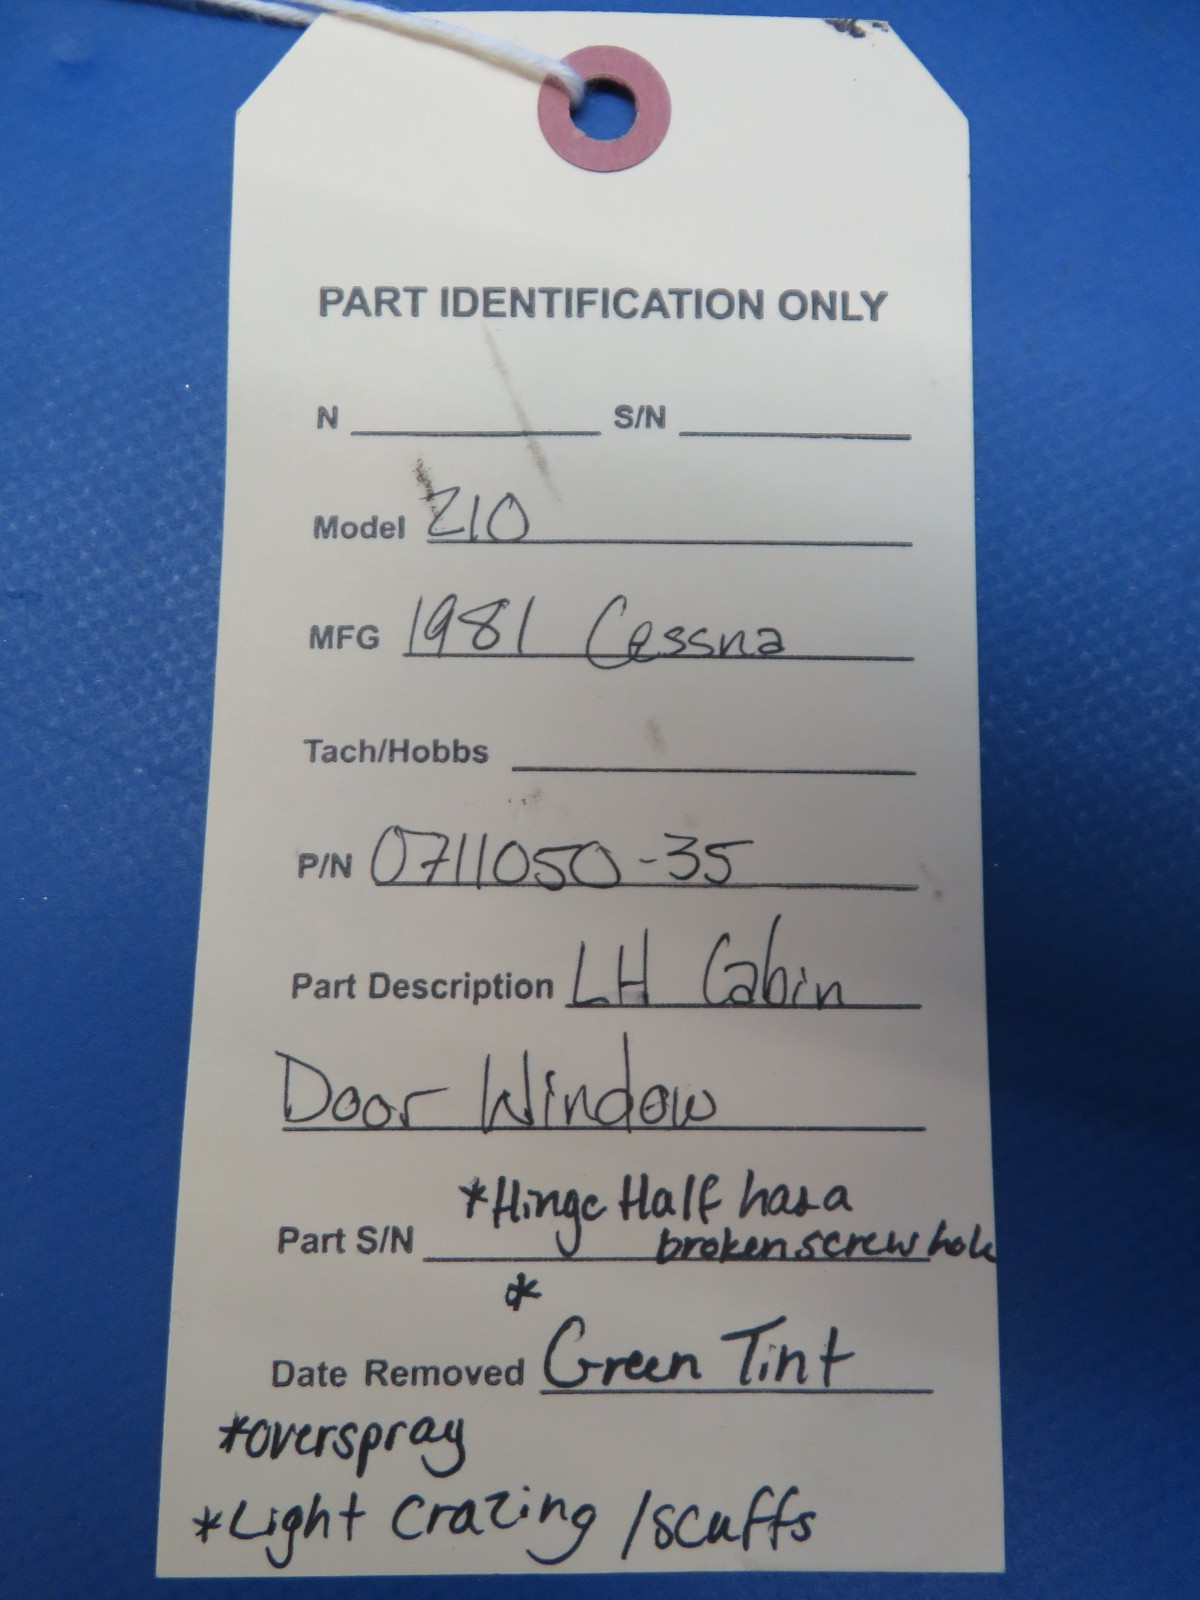 PART IDENTIFICATION ONLY
N S/N
Model 210
MFG 1981 Cessna
Tach/Hobbs
P/N 0711050-35
Part Description LH Cabin
Door Window
*Hinge Half has a
Part S/N broken screw hole
*
Date Removed Green Tint
*overspray
*Light crazing /scuffs